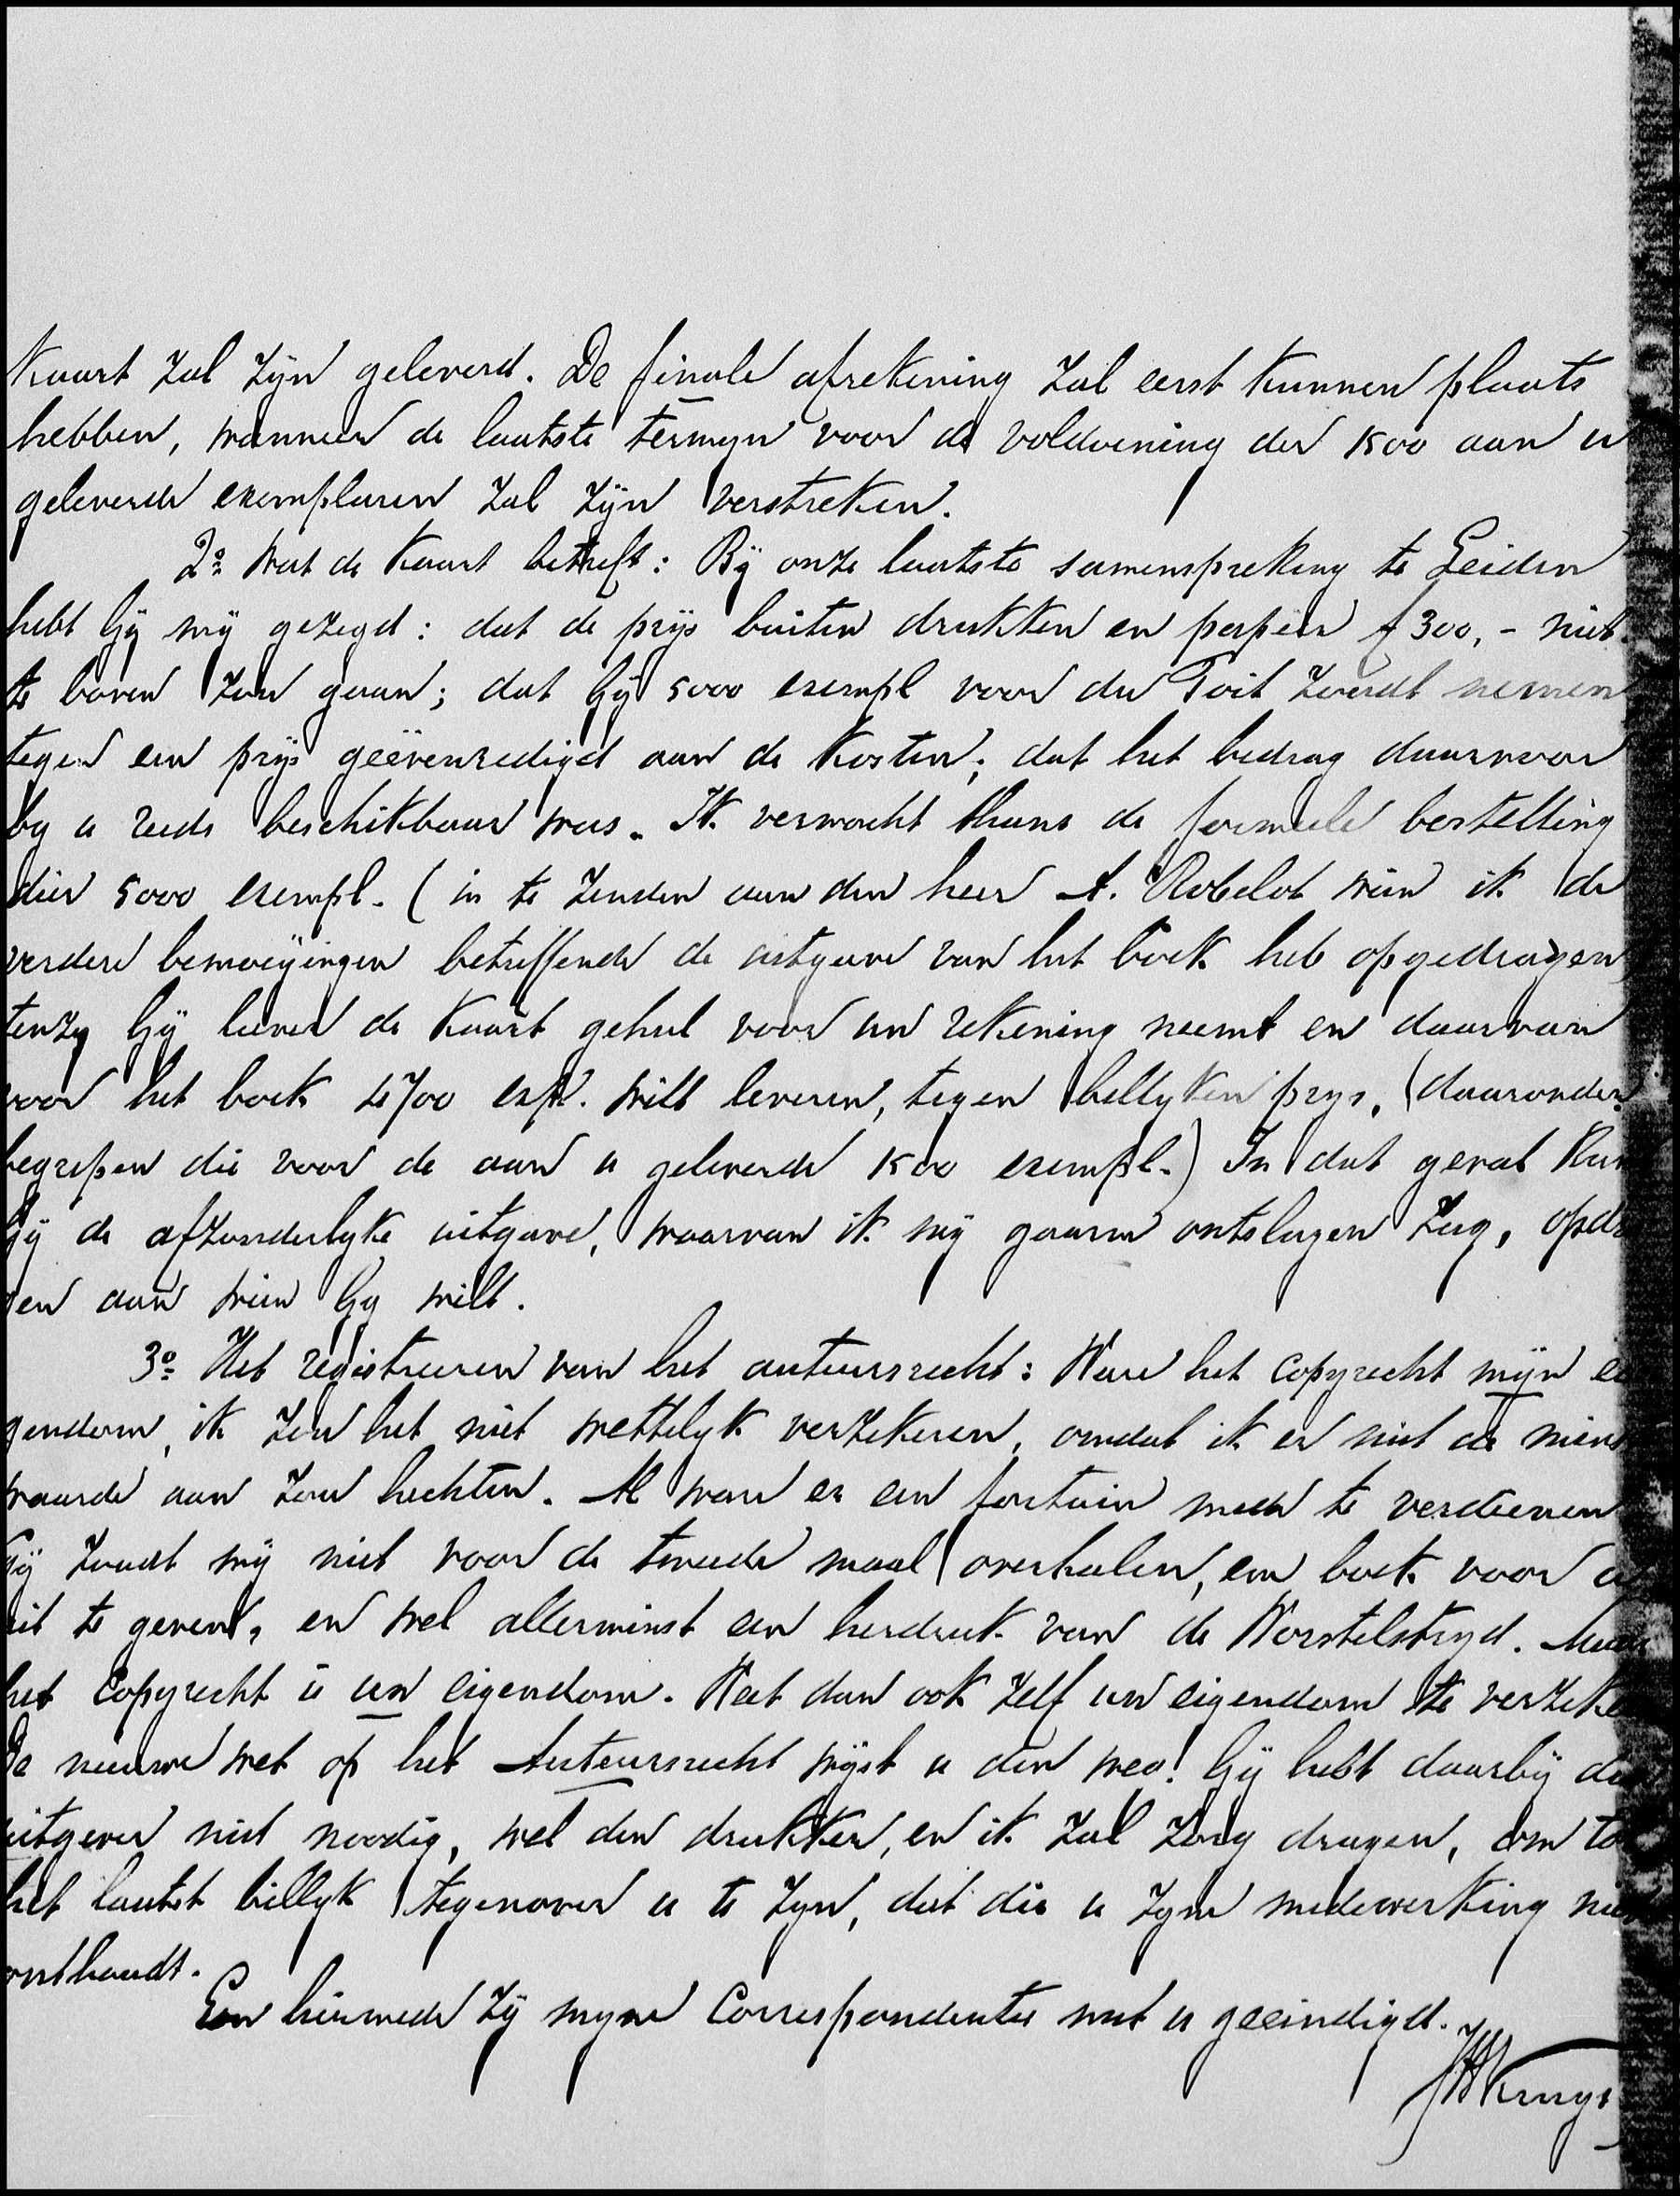 Kaart zal zijn geleverd. De finale afrekening zal eerst kunnen plaats
hebben, wanneer de laatste termyn voor de voldoening der 1500 aan u
geleverde exemplaren zal zijn verstreken.
2º Wat de Kaart betreft: Bij onze laatste samenspreking te Leiden
hebt Gij mij gezegd: dat de prijs buiten drukken en papier f 300,- niet
te boven zou gaan; dat Gij 5000 exempl voor du Toit zoudt nemen
tegen een prijs geëvenredigd aan de kosten; dat het bedrag daarvoor
by u reeds beschikbaar was. Ik verwacht thans de formeele bestelling
dier 5000 exempl. (in te zenden aan den heer A. Robelot wien ik de
verdere bemoeijingen betreffende de uitgave van het boek heb opgedragen)
tenzy Gij liever de Kaart geheel voor uw rekening neemt en daarvan
voor het boek 4700 expl. wilt leveren, tegen billyken prys, (daaronder
begrepen die voor de aan u geleverde 1500 exempl.) In dat geval kun
Gij de afzonderlyke uitgave, waarvan ik mij gaarne ontslagen zag, opdra
gen aan wien Gy wilt.
3º Het registreeren van het auteursrecht: Ware het copyrecht mijn ei
gendom, ik zou het niet wettelyk verzekeren, omdat ik er niet de mins
waarde aan zou hechten. Al ware er een fortuin mede te verdienen
Gij zoudt mij niet voor de tweede maal overhalen, een boek voor u
uit te geven, en wel allerminst een herdruk van de Worstelstryd. Maar
het copyrecht is uw eigendom. Weet dan ook zelf uw eigendom te verzeke
De nieuwe wet op het Auteursrecht wijst u den weg! Gij hebt daarbij den
uitgever niet noodig, wel den drukker, en ik zal zorg dragen, om tot
het laatst billyk tegenover u te zyn, dat die u zyne medewerking niet
onthoudt.
En hiermede zij myne Correspondentie met u geëindigd.
JHKruyt